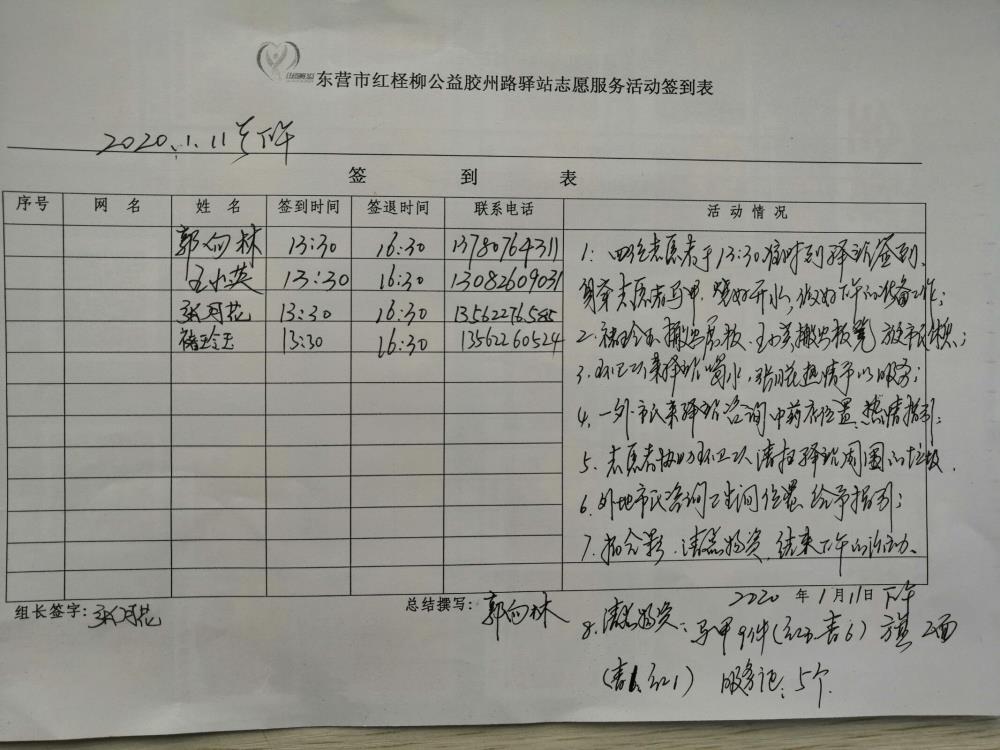 东营市红柽柳公益胶州路驿站志愿服务活动签到表
2020.1.11号下午
签 到 表
序号 网 名 姓 名 签到时间 签退时间 联系电话 活 动 情 况
郭向林 13:30 16:30 13780764311
王小英 13:30 16:30 13082609031
张月花 13:30 16:30 13562276585
褚玲玉 13:30 16:30 13562260524
1: 四位志愿者于13:30准时到驿站签到.
穿志愿者马甲、烧好开水,做好下午的准备工作;
2、褚玲玉搬出展板、王小英搬出板凳放
3、环卫工来驿站喝水,张月花热情予以服务;
4、一外市民来驿站咨询中药店位置、热情指引;
5、志愿者协助环卫工清扫驿站周围的垃圾.
6、外地市民咨询卫生间位置、给予指引;
7、拍合影、清点物资、结束下午的活动、
组长签字: 张月花
总结撰写: 郭向林
2020 年 1 月 11 日下午
8、清点物资: 马甲9件(红3.青6) 方旗2面
(青1、红1) 服务记: 5个.